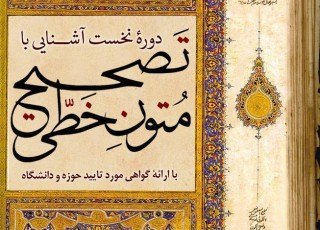 دورهٔ نخست آشنایی با
تصحیح
متون خطّی
با ارائهٔ گواهی مورد تایید حوزه و دانشگاه